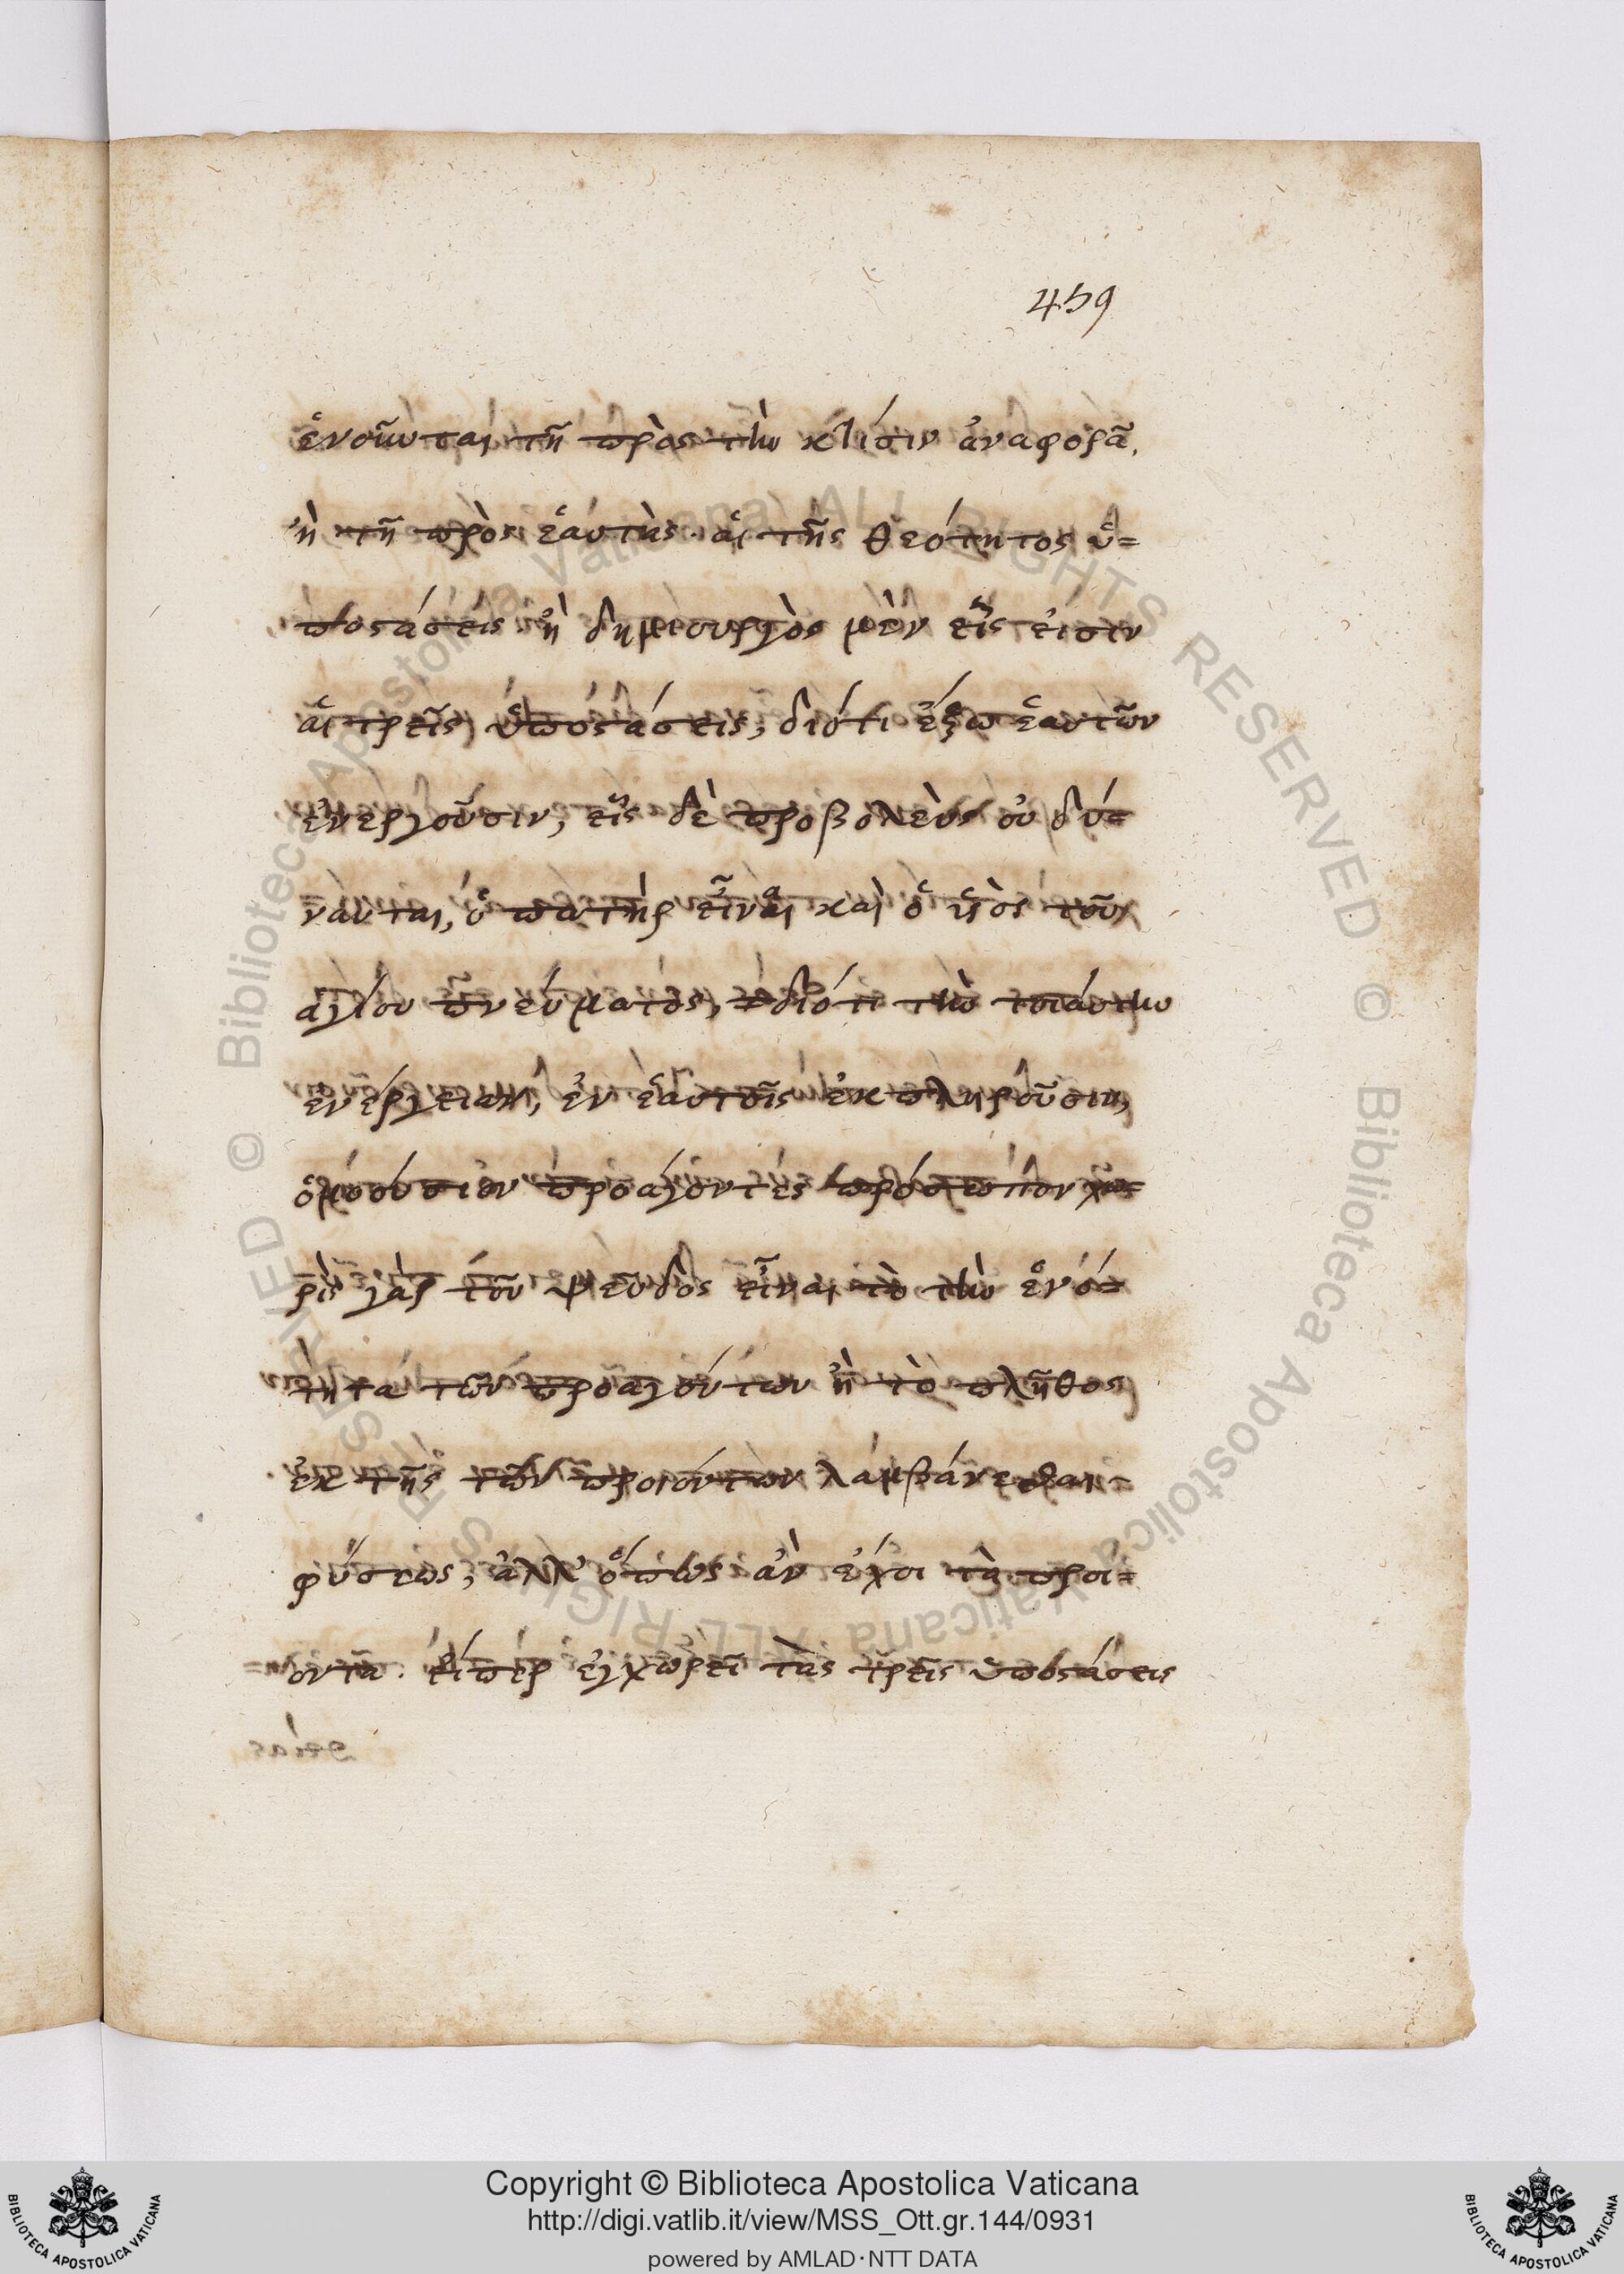 459
ἑνοῦνται τῆ πρὸς τὴν κλίσιν ἀναφορᾶ,
ἢ τῆ πρὸς ἑαυτὴς αἱ τῆς θεότητος ὑ=
ποστάσεις ἢ δημιουργὸς μὲν εἷς εἰσιν
αἱ τρεῖς ὑποστάσεις, διότι ἔξω ἑαυτῶν
ἐνεργοῦσιν, εἷς δὲ προβολεὺς οὐ δύ=
νανται, ὁ πατὴρ εἶναι καὶ ὁ υἱὸς τοῦ
ἁγίου πνεύματος, διότι τὴν τοιάυτην
ἐνέργειαν, ἐν ἑαυτοῖς ἐκπληροῦσιν,
ὁμοούσιον προάγοντες πρόσωπον χω=
ρὶς γὰρ τοῦ ψεῦδος εἶναι τὸ τὴν ἑνό=
τητα τῶν προαγόντων ἢ τὸ πλῆθος
ἐκ τῆς τῶν προιόντων λαμβάνεσθαι
φύσεως, ἀλλ' ὅπως ἂν ἔχοι τὰ προϊ=
οντα. εἴπερ ἐγχωρεῖ τὰς τρεῖς ὑποστάσεις
Copyright © Biblioteca Apostolica Vaticana
http://digi.vatlib.it/view/MSS_Ott.gr.144/0931
powered by AMLAD·NTT DATA
BIBLIOTECA APOSTOLICA VATICANA
BIBLIOTECA APOSTOLICA VATICANA
© Biblioteca Apostolica Vaticana ALL RIGHTS RESERVED
© Biblioteca Apostolica Vaticana ALL RIGHTS RESERVED